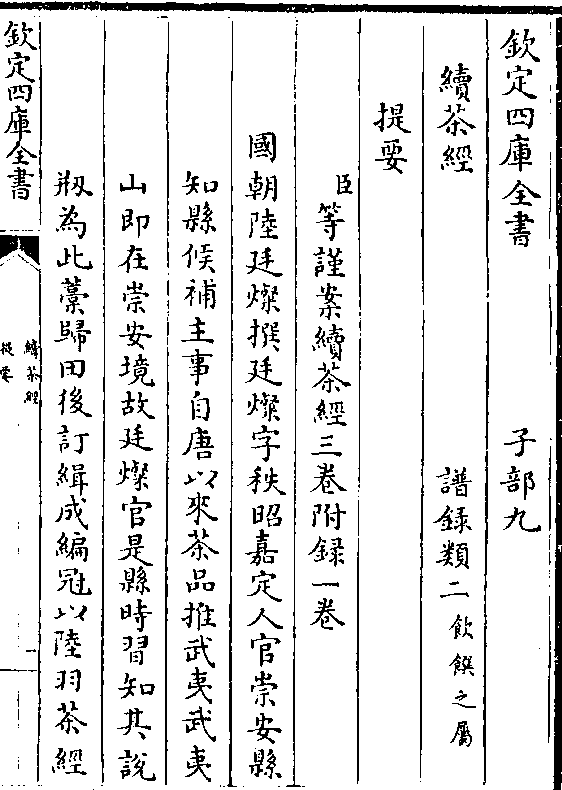 欽定四庫全書　子部九
續茶經　譜錄類二飲饌之屬
提要
臣等謹案續茶經三卷附錄一卷
國朝陸廷燦撰廷燦字秩昭嘉定人官崇安縣
知縣候補主事自唐以來茶品推武夷武夷
山即在崇安境故廷燦官是縣時習知其說
剏為此藁歸田後訂緝成編冠以陸羽茶經
欽定四庫全書
續茶經
提要
一